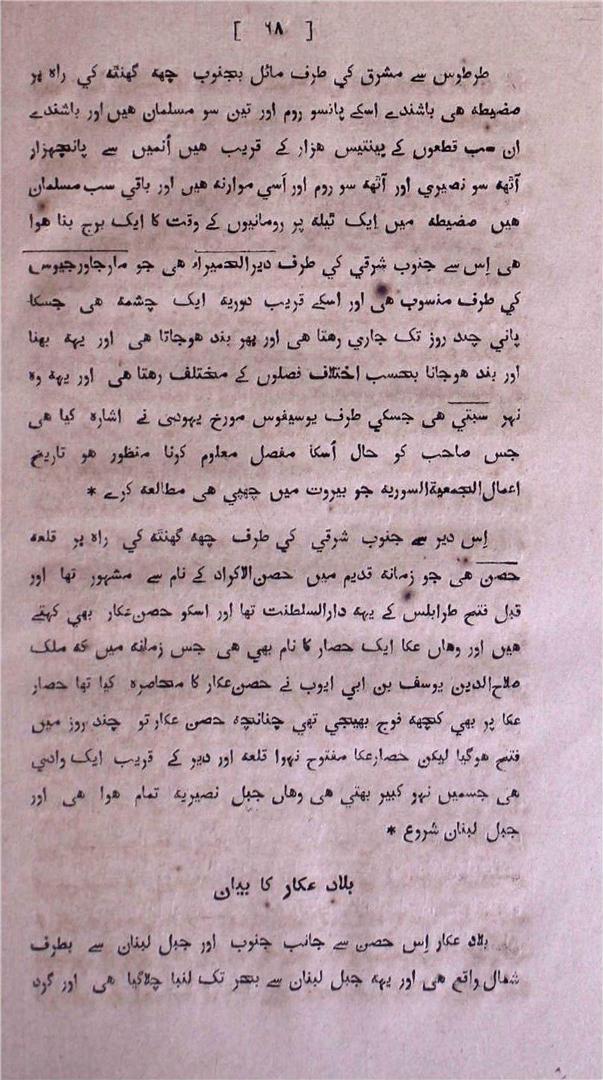 [ ٦٨ ]
طرطوس سے مشرق کي طرف مائل بجنوب چهه گهنٹه کي راه پر
صفيطه هی باشندے اسکے پانسو روم اور تين سو مسلمان هيں اور باشندے
ان سب قطعوں کے پينتيس هزار کے قريب هيں اُنميں سے پانچهزار
آٹهه سو نصيري اور آٹهه سو روم اور اَسي موارنه هيں اور باقي سب مسلمان
هيں صفيطه ميں اِيک ٹيله پر رومانيوں کے وقت کا ايک برج بنا هوا
هی اِس سے جنوب شرقي کي طرف ديرالحميراء هی جو مارجاورجيوس
کي طرف منسوب هی اور اسکے قريب دوريه ايک چشمه هی جسکا
پاني چند روز تک جاري رهتا هی اور پهر بند هوجاتا هی اور يهه بهنا
اور بند هوجانا بحسب اختلاف فصلوں کے مختلف رهتا هی اور يهه وه
نهر سبتي هی جسکي طرف يوسيفوس مورخ يهودی نے اشاره کيا هی
جس صاحب کو حال اُسکا مفصل معلوم کرنا منظور هو تاريخ
اعمال‌الجمعية‌السوريه جو بيروت ميں چهپي هی مطالعه کرے *
اِس دير سے جنوب شرقي کي طرف چهه گهنٹه کي راه پر قلعه
حصن هی جو زمانه قديم ميں حصن‌الاکراد کے نام سے مشهور تها اور
قبل فتح طرابلس کے يهه دارالسلطنت تها اور اسکو حصن‌عکار بهي کهتے
هيں اور وهاں عکا ايک حصار کا نام بهي هی جس زمانه ميں که ملک
صلاح‌الدين يوسف بن ابي ايوب نے حصن‌عکار کا محاصره کيا تها حصار
عکا پر بهي کچهه فوج بهيجي تهي چنانچه حصن عکار تو چند روز ميں
فتح هوگيا ليکن حصارعکا مفتوح نهوا قلعه اور دير کے قريب ايک وادي
هی جسميں نهر کبير بهتي هی وهاں جبل نصيريه تمام هوا هی اور
جبل لبنان شروع *
بلاد عکار کا بيان
بلاد عکار اِس حصن سے جانب جنوب اور جبل لبنان سے بطرف
شمال واقع هی اور يهه جبل لبنان سے بحر تک لنبا چلاگيا هی اور گرد